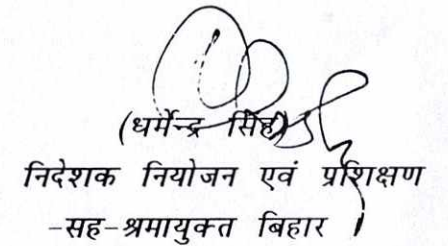 (धर्मेन्द्र सिंह)
निदेशक नियोजन एवं प्रशिक्षण
-सह-श्रमायुक्त बिहार